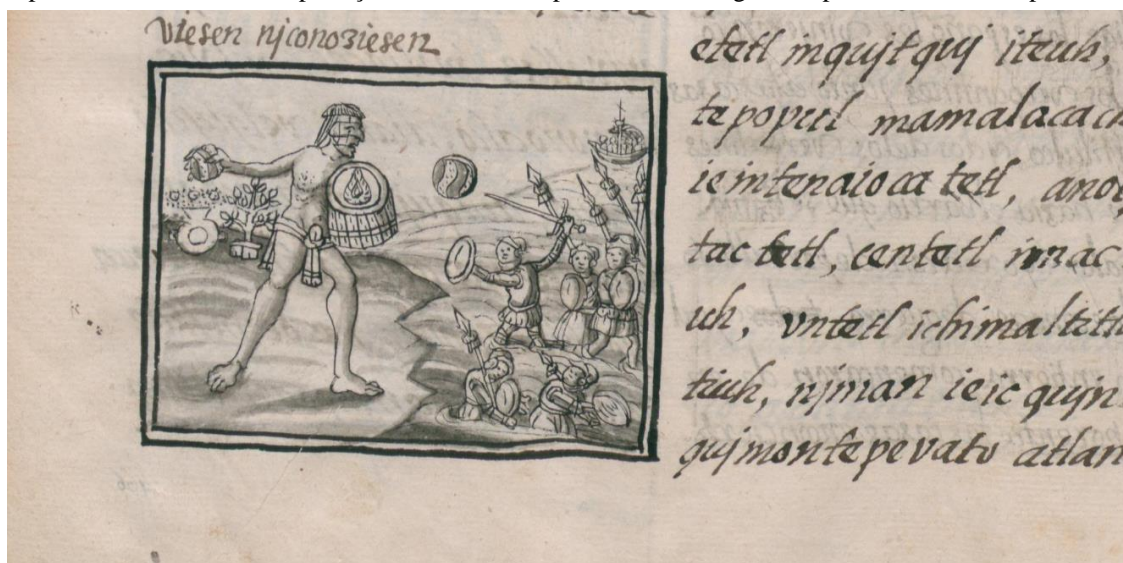 viesen njconoziesen
etetl inqujtquj iteuh,
tepopul mamalaca
ie intenaioca tetl, ano
tac tetl, centetl imac
uh, vntetl ichimaltitl
tiuh, njman ie ic qujn
qujmontepevato atlan